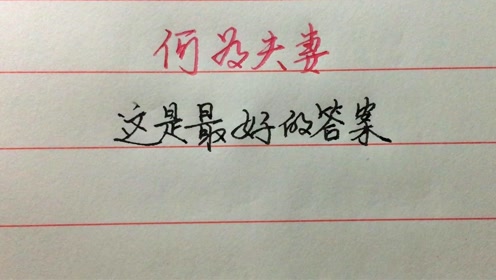 何为夫妻
这是最好的答案